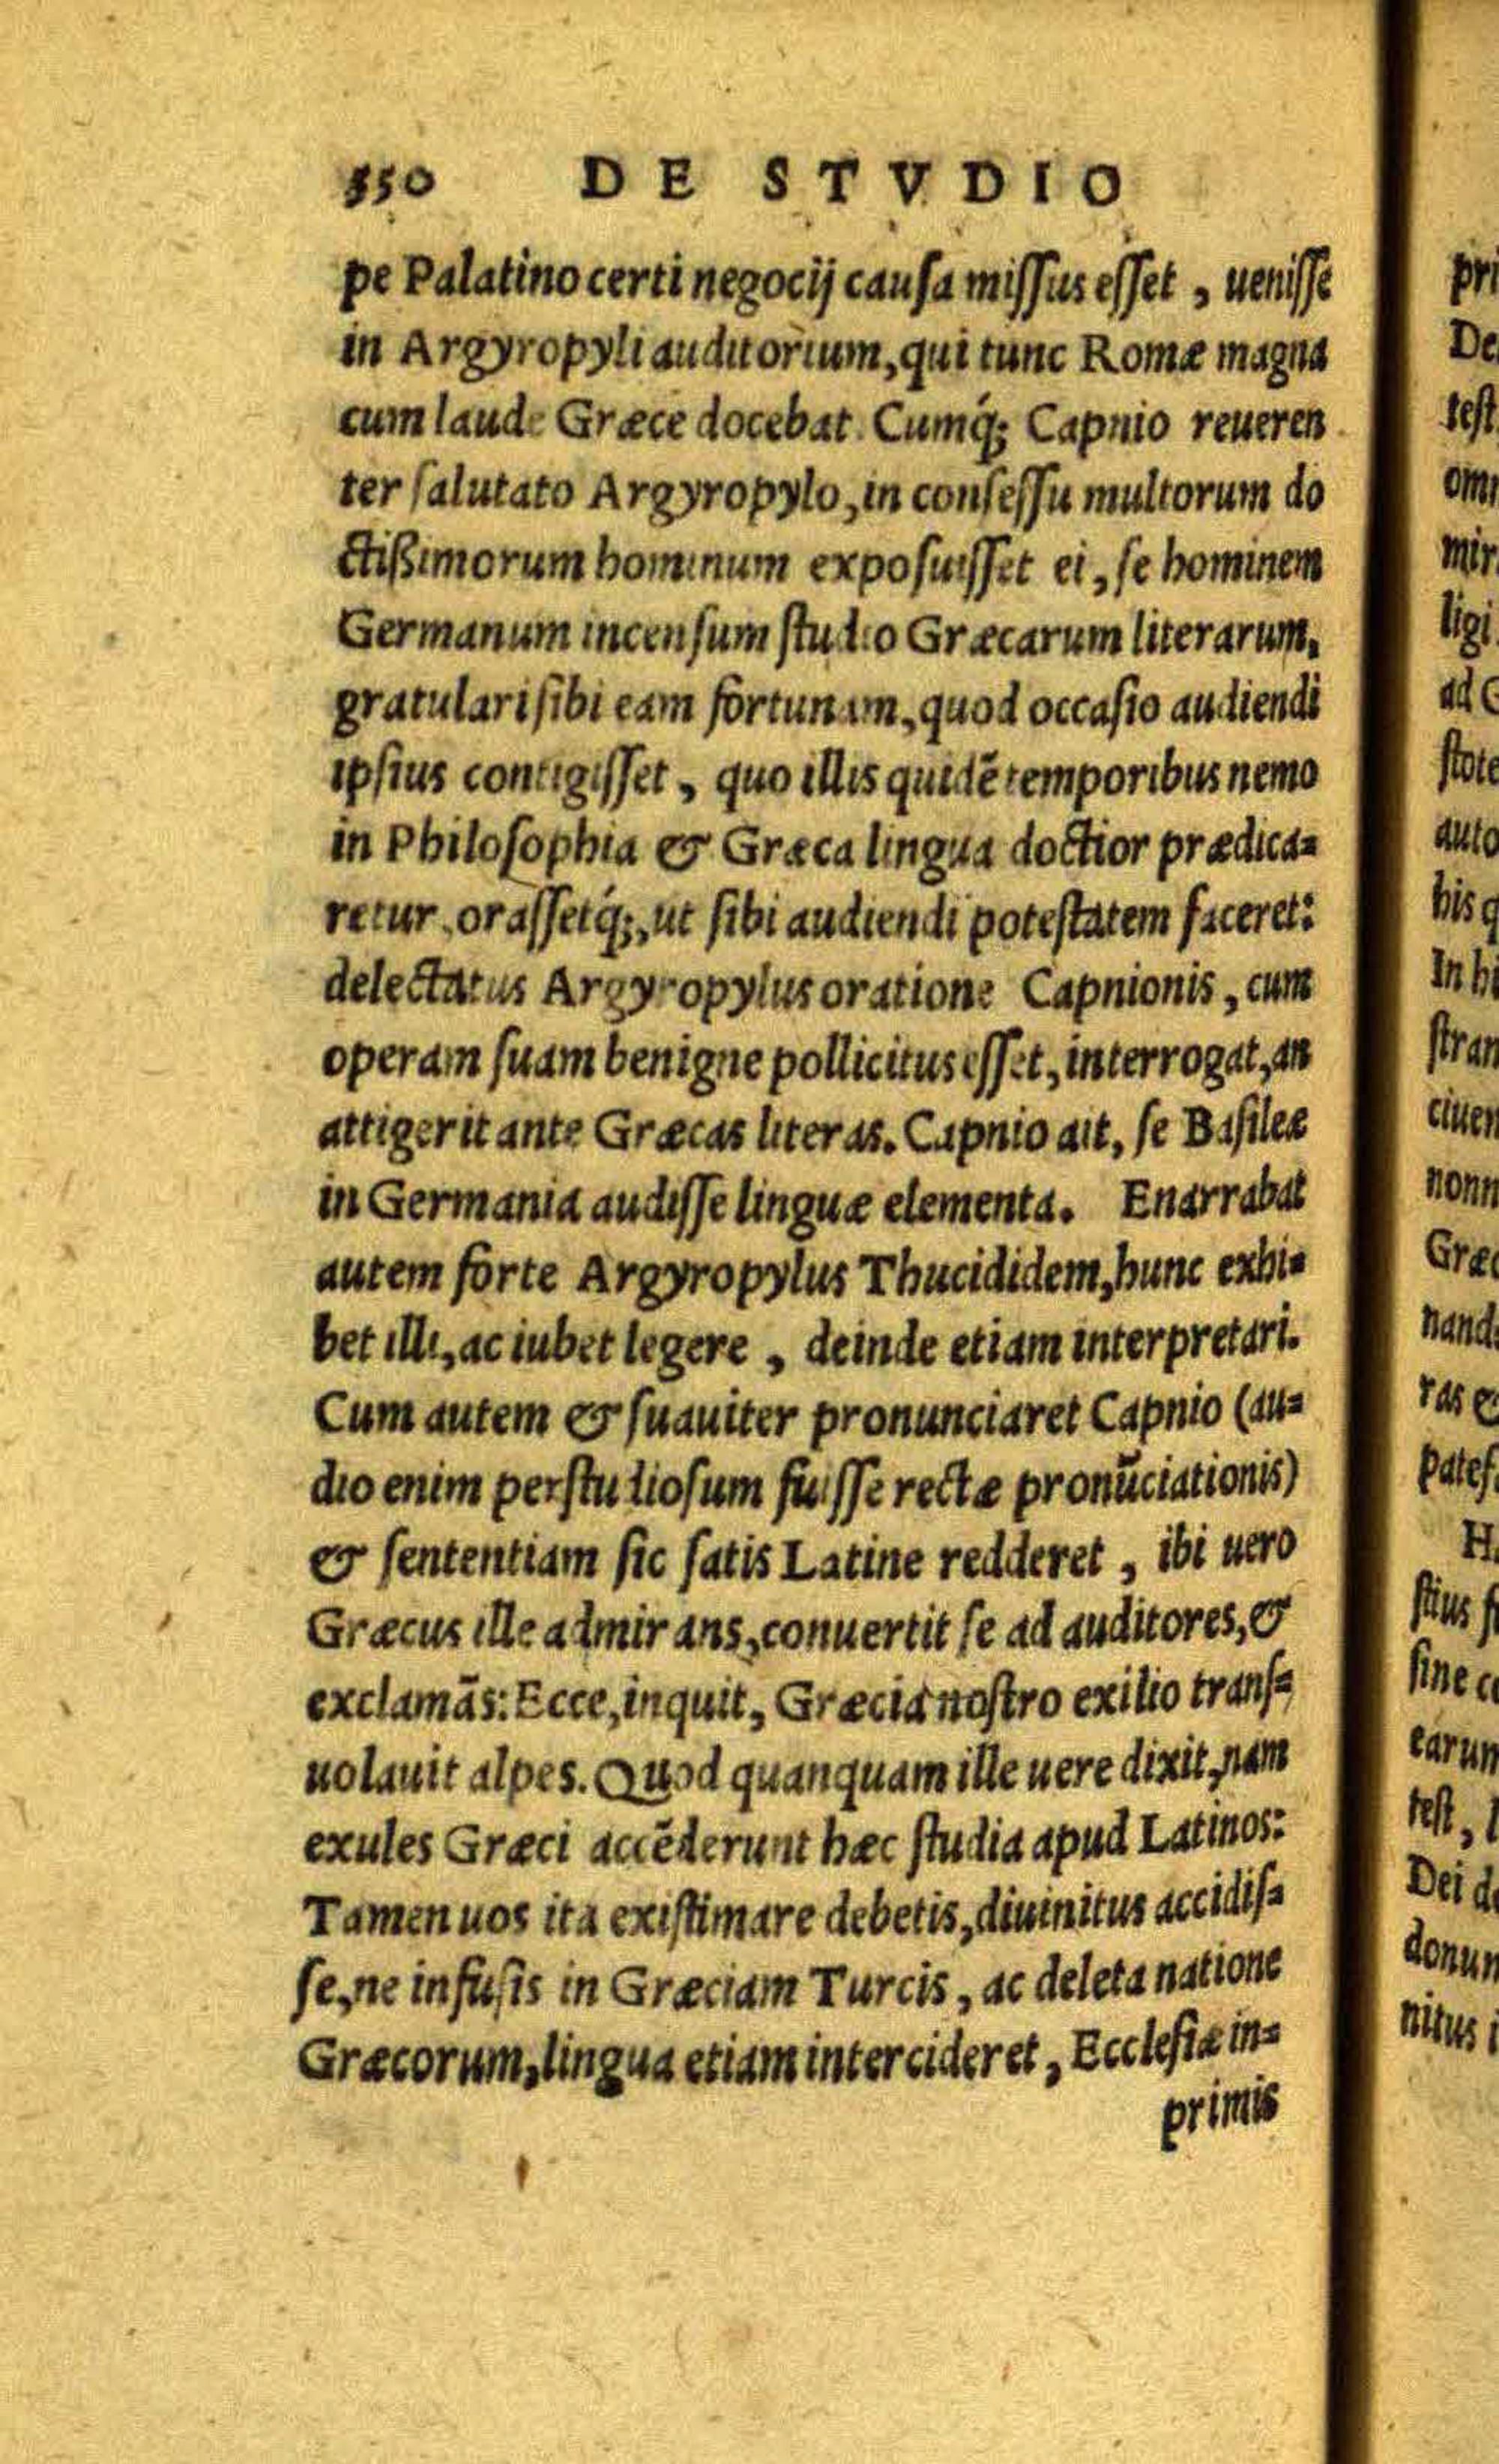 550 DE STVDIO
pe Palatino certi negocij causa missus esset, uenisse
in Argyropyli auditorium, qui tunc Romæ magna
cum laude Græce docebat. Cumq́; Capnio reueren
ter salutato Argyropylo, in consessu multorum do
ctißimorum hominum exposuisset ei, se hominem
Germanum incensum studio Græcarum literarum,
gratulari sibi eam fortunam, quod occasio audiendi
ipsius contigisset, quo illis quidē temporibus nemo
in Philosophia & Græca lingua doctior prædica=
retur, orassetq́;, ut sibi audiendi potestatem faceret:
delectatus Argyropylus oratione Capnionis, cum
operam suam benigne pollicitus esset, interrogat, an
attigerit ante Græcas literas. Capnio ait, se Basileæ
in Germania audisse linguæ elementa. Enarrabat
autem forte Argyropylus Thucididem, hunc exhi=
bet illi, ac iubet legere, deinde etiam interpretari.
Cum autem & suauiter pronunciaret Capnio (au=
dio enim perstudiosum fuisse rectæ pronūciationis)
& sententiam sic satis Latine redderet, ibi uero
Græcus ille admirans, conuertit se ad auditores, &
exclamās: Ecce, inquit, Græcia nostro exilio trans=
uolauit alpes. Quod quanquam ille uere dixit, nam
exules Græci accēderunt hæc studia apud Latinos:
Tamen uos ita existimare debetis, diuinitus accidis=
se, ne infusis in Græciam Turcis, ac deleta natione
Græcorum, lingua etiam intercideret, Ecclesiæ in=
primis